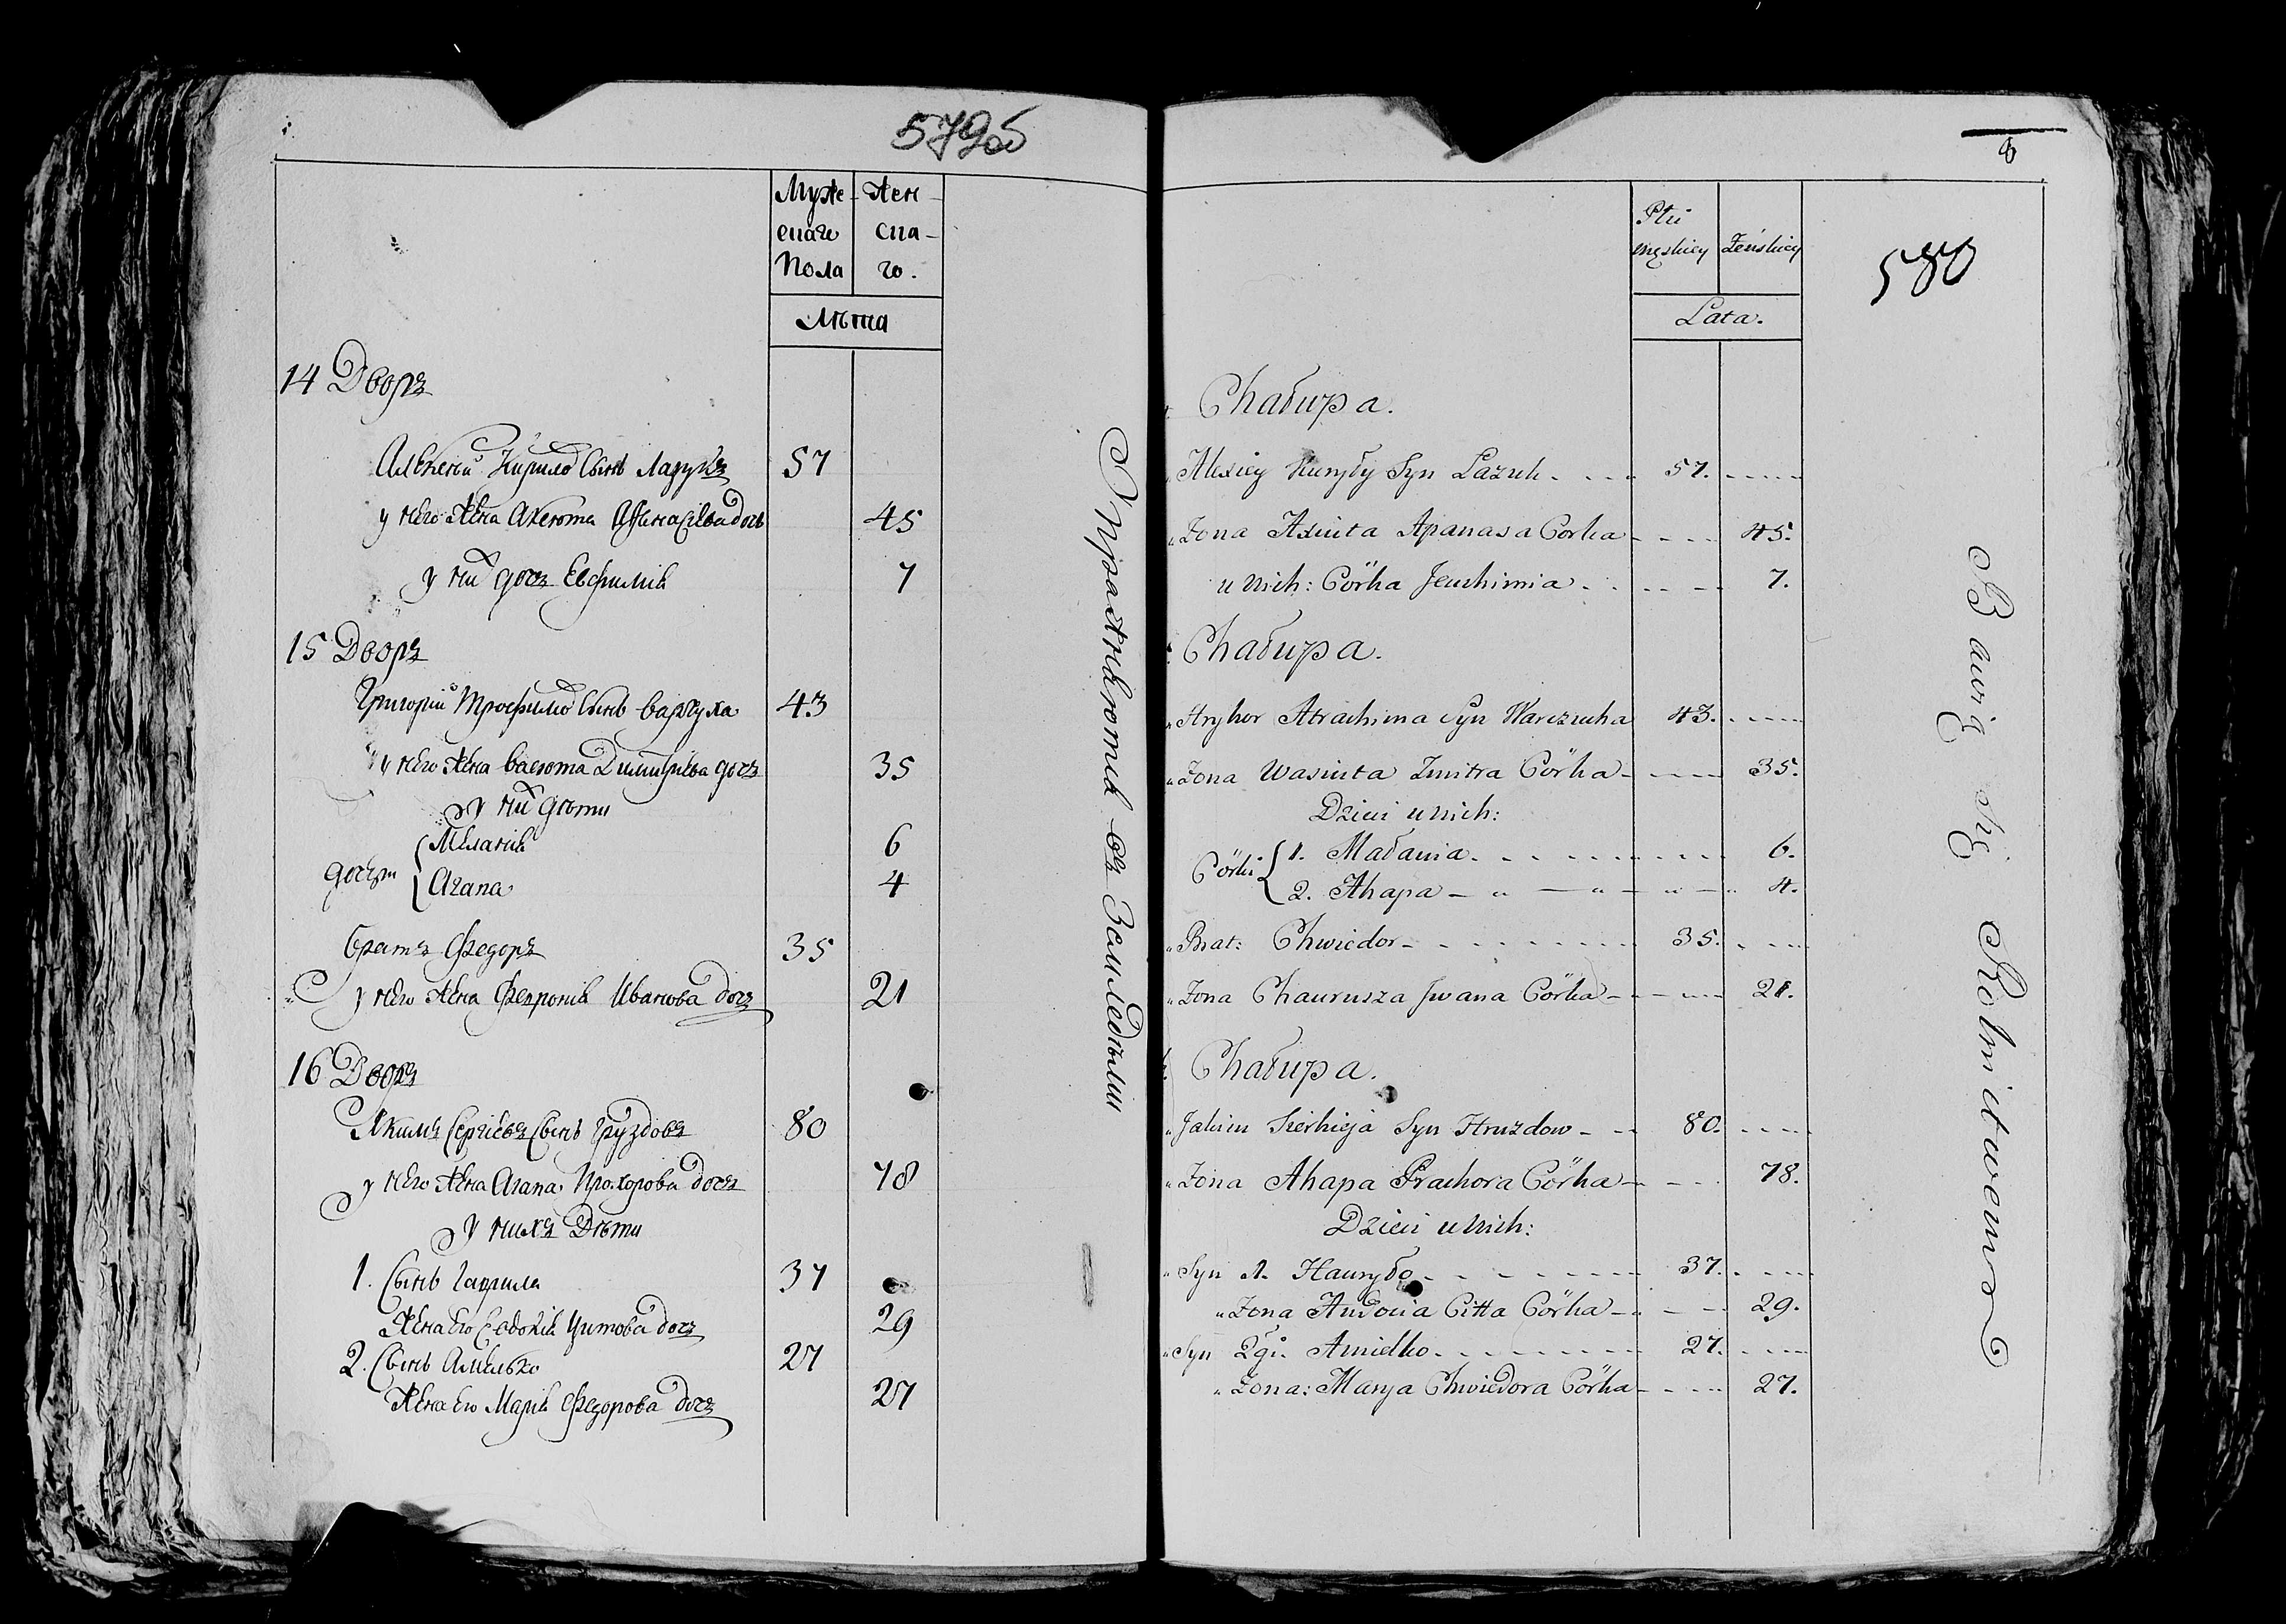 579об
Муже- Жен-
скаго ска-
Пола го.
Лѣта
14 Дворъ
Алексѣй Кирилов Сынъ Лазукъ 57
у него Жена Аксюта Афанасіева дочь 45
у них дочь Евфимія 7
15 Дворъ
Григорій Трофимов Сынъ Варчуха 43
у него Жена Васюта Димитріева дочь 35
у них дѣти
дочери { Меланія 6
Агапа 4
Братъ Федоръ 35
у него Жена Февронія Иванова дочь 21
16 Дворъ
Якимъ Сергіевъ Сынъ Груздовъ 80
у него Жена Агапа Прохорова дочь 78
у нихъ Дѣти
1. Сынъ Гаврила 37
Жена его Евдокія Титова дочь 29
2. Сынъ Амелько 27
Жена его Марія Федорова дочь 27
Упражняются въ Земледѣліи
8
580
Płci
męskiey Żeńskiey
Lata.
Chałupa.
Alexiey Kuryły Syn Lazuk 57.
Żona Axiuta Apanasa Córka 45.
u Nich: Córka Jeuchimia 7.
Chałupa.
Hryhor Atrachima Syn Warczucha 43.
Żona Wasiuta Zmitra Córka 35.
Dzieci u Nich:
Córki { 1. Małania 6.
2. Ahapa 4.
Brat: Chwiedor 35.
Żona Chaurusza Jwana Córka 21.
Chałupa.
Jakim Sierhieja Syn Hruzdow 80.
Żona Ahapa Prachora Córka 78.
Dzieci u Nich:
Syn 1. Hauryło 37.
Żona Audocia Citta Córka 29.
Syn 2gi. Amielko 27.
Żona: Marya Chwiedora Córka 27.
Bawią się Rolnictwem